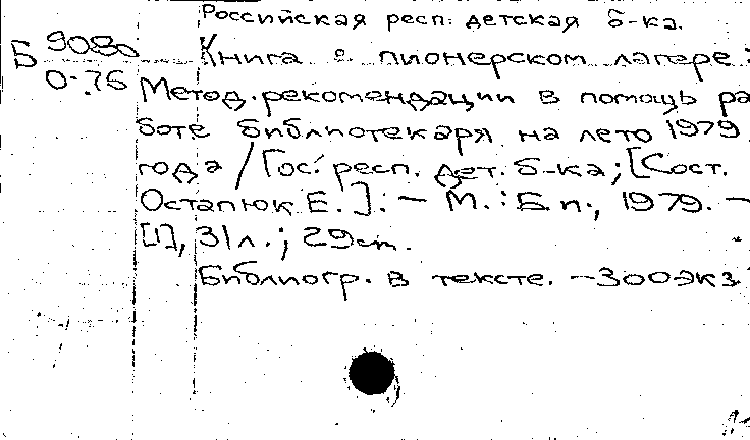 Российская респ. детская б-ка.
Б 9080
О-76
Книга о пионерском лагере:
Метод. рекомендации в помощь ра
боте библиотекаря на лето 1979
года / Гос. респ. дет. б-ка; [Сост.
Остапюк Е.]. — М. : Б.п., 1979. —
[1], 31 л. ; 29 см.
Библиогр. в тексте. — 300 экз